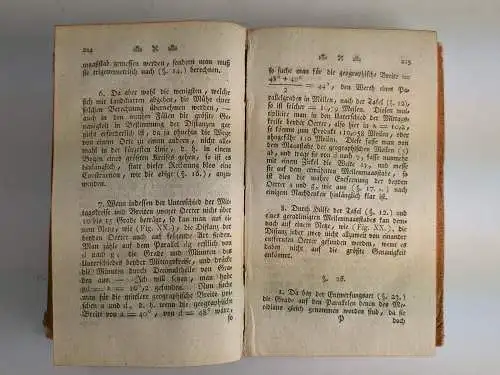 224
maaßstab gemessen werden, sondern man muß
sie trigonometrisch nach (§. 14.) berechnen.
6. Da aber wohl die wenigsten, welche
sich mit Landcharten abgeben, die Mühe einer
solchen Berechnung übernehmen werden, —
auch in den meisten Fällen die größte Ge-
nauigkeit in Bestimmung der Distanzen gar
nicht erforderlich ist, da ja ohnehin die Wege
von einem Orte zu einem andern, nicht allemahl
wohl in der kürzesten Linie, d. h. in einem
Bogen eines größten Kreises gehen, so ist es
hinlänglich, statt dieser Rechnung blos eine
Construction, wie die obige (§. 18.), anzu-
wenden.
7. Wenn indessen der Unterschied der Mit-
tagskreise und Breiten zweyer Oerter nicht über
10 bis 15 Grade beträgt, so kan man aus ei-
nem Netze, wie (Fig. XX.), die Distanz der
beyden Oerter auch auf folgende Art finden.
Man muß auf dem Parallel dg erstlich von
d nach g, die Grade und Minuten des
Unterschiedes beyder Mittagskreise, und drücke
die Minuten durch Decimaltheile von Gra-
den aus. — Ich will setzen, man habe
= 10°,2 gefunden. Nun suche
man für die mittlere geographische Breite von
a und d, z. h. wenn die geographische
Breite von a = 40°, von d = 48° wäre,
so
225
so suche man für die geographische Breite =
48° + 40°
2
= 44°, den Werth eines Pa-
rallelgrades in Meilen, nach der Tafel (§. 12),
so ist dieser = 10,79 Meilen. Diesen mul-
tiplicire man in den Unterschied der Mittags-
kreise beyder Oerter, also hier in 10,2,
so kömmt zum Produkt 110,058 Meilen, oder
ohngefähr 110 Meilen. Diese fasse man von
dem Maaßstabe der geographischen Meilen (§
und trage sie von d nach z, fasse nunmehr
mit einem Zirkel die Weite az, und messe
sie auf dem erwähnten Meilenmaaßstabe, so
haben wir die wahre Entfernung der beyden
Oerter a und g, wie aus (§. 17. n. ) nach
einigem Nachdenken hinlänglich klar ist.
8. Durch Hülfe der Tafel (§. 12.) und
eines geradlinigten Meilenmaaßstabes kan denn
doch aus einem Netze, wie (Fig. XX.), die
Distanz zwar nicht allgemein von einander
entfernten Oerter gefunden werden, wenn es
dabey nicht auf die größte Genauigkeit
ankömmt.
§. 26.
1. Da bey der Entwerfungsart (§. 23.)
die Grade auf den Parallelen denen des Me-
ridians gleich genommen werden, da sie
P doch